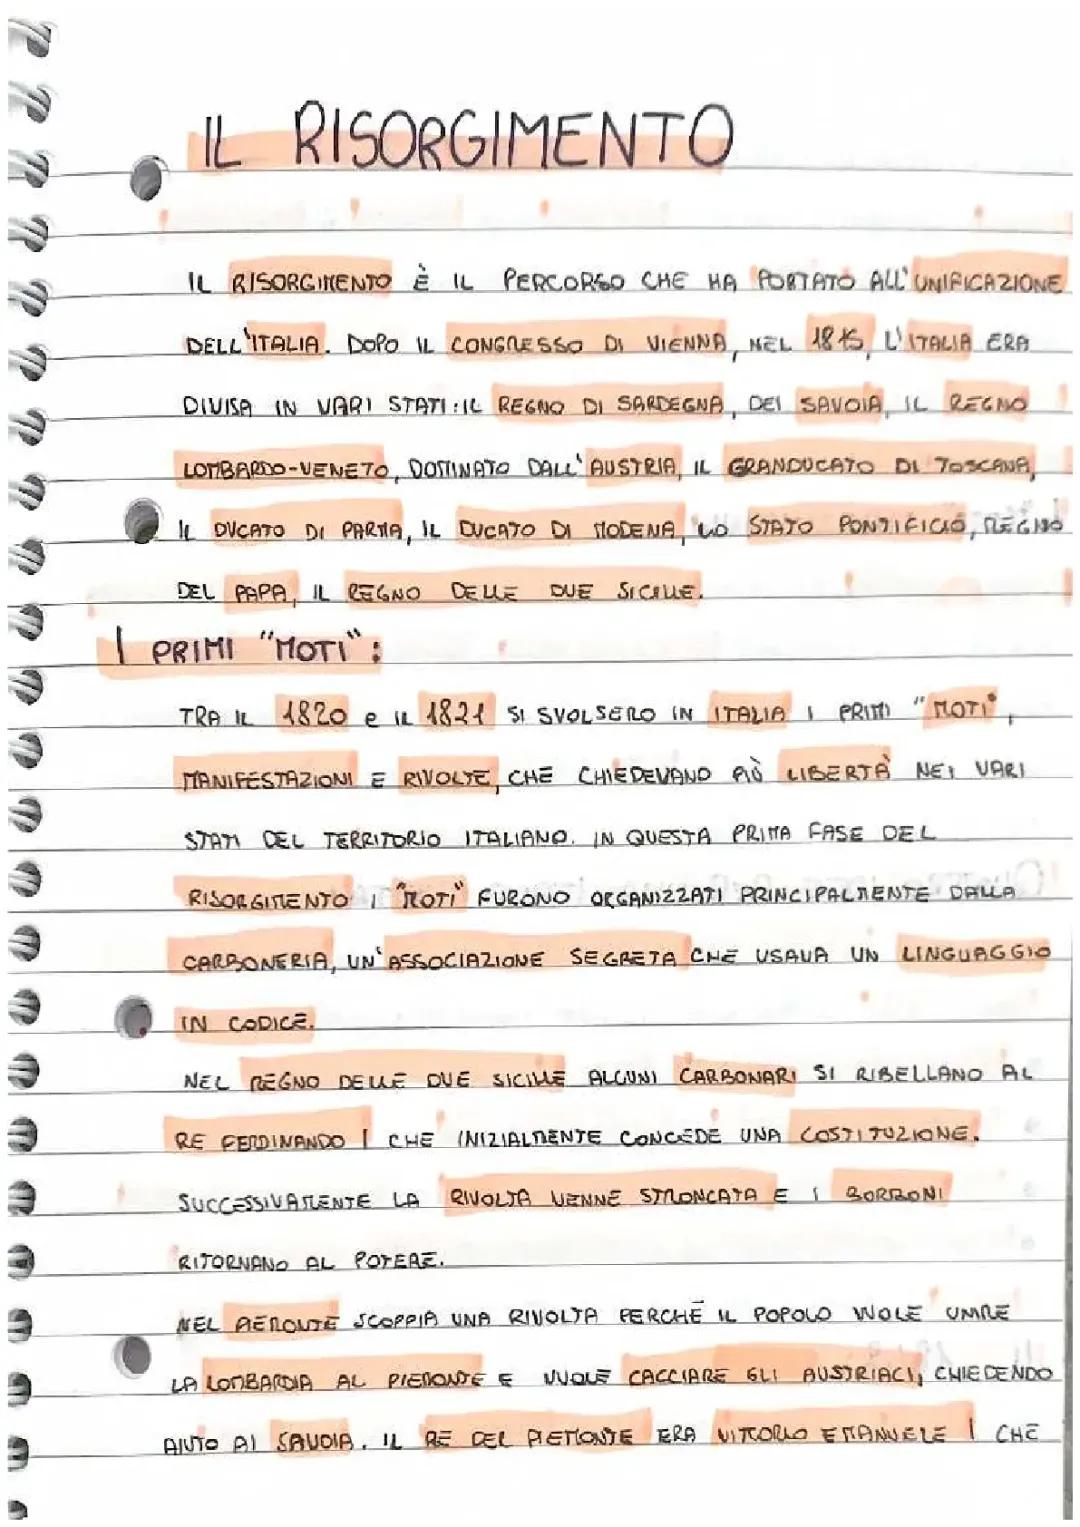 IL RISORGIMENTO
IL RISORGIMENTO È IL PERCORSO CHE HA PORTATO ALL'UNIFICAZIONE
DELL'ITALIA. DOPO IL CONGRESSO DI VIENNA, NEL 1815, L'ITALIA ERA
DIVISA IN VARI STATI: IL REGNO DI SARDEGNA, DEI SAVOIA, IL REGNO
LOMBARDO-VENETO, DOMINATO DALL'AUSTRIA, IL GRANDUCATO DI TOSCANA,
IL DUCATO DI PARMA, IL DUCATO DI MODENA, LO STATO PONTIFICIO, REGNO
DEL PAPA, IL REGNO DELLE DUE SICILIE.
I PRIMI "MOTI":
TRA IL 1820 e IL 1821 SI SVOLSERO IN ITALIA I PRIMI "MOTI",
MANIFESTAZIONI E RIVOLTE, CHE CHIEDEVANO PIÙ LIBERTÀ NEI VARI
STATI DEL TERRITORIO ITALIANO. IN QUESTA PRIMA FASE DEL
RISORGIMENTO I "MOTI" FURONO ORGANIZZATI PRINCIPALMENTE DALLA
CARBONERIA, UN'ASSOCIAZIONE SEGRETA CHE USAVA UN LINGUAGGIO
IN CODICE.
NEL REGNO DELLE DUE SICILIE ALCUNI CARBONARI SI RIBELLANO AL
RE FERDINANDO I CHE INIZIALMENTE CONCEDE UNA COSTITUZIONE.
SUCCESSIVAMENTE LA RIVOLTA VENNE STRONCATA E I BORBONI
RITORNANO AL POTERE.
NEL PIEMONTE SCOPPIA UNA RIVOLTA PERCHÉ IL POPOLO VUOLE UNIRE
LA LOMBARDIA AL PIEMONTE E VUOLE CACCIARE GLI AUSTRIACI, CHIEDENDO
AIUTO AI SAVOIA. IL RE DEL PIEMONTE ERA VITTORIO EMANUELE I CHE